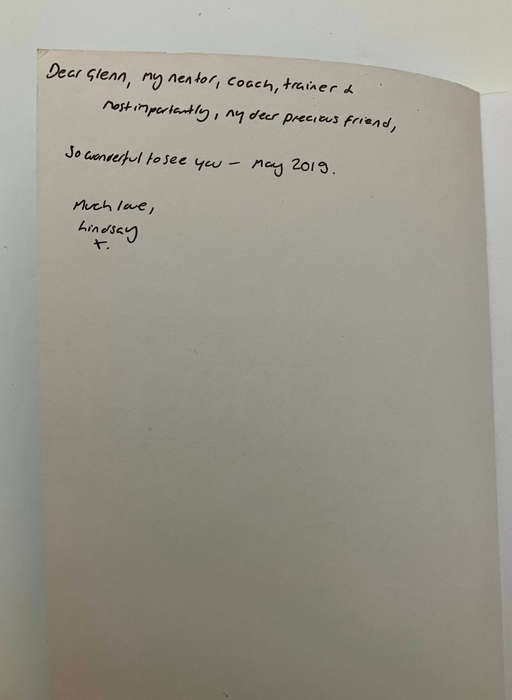 Dear Glenn, my mentor, coach, trainer &
most importantly, my dear precious friend,
So wonderful to see you – May 2019.
Much love,
Lindsay
x.